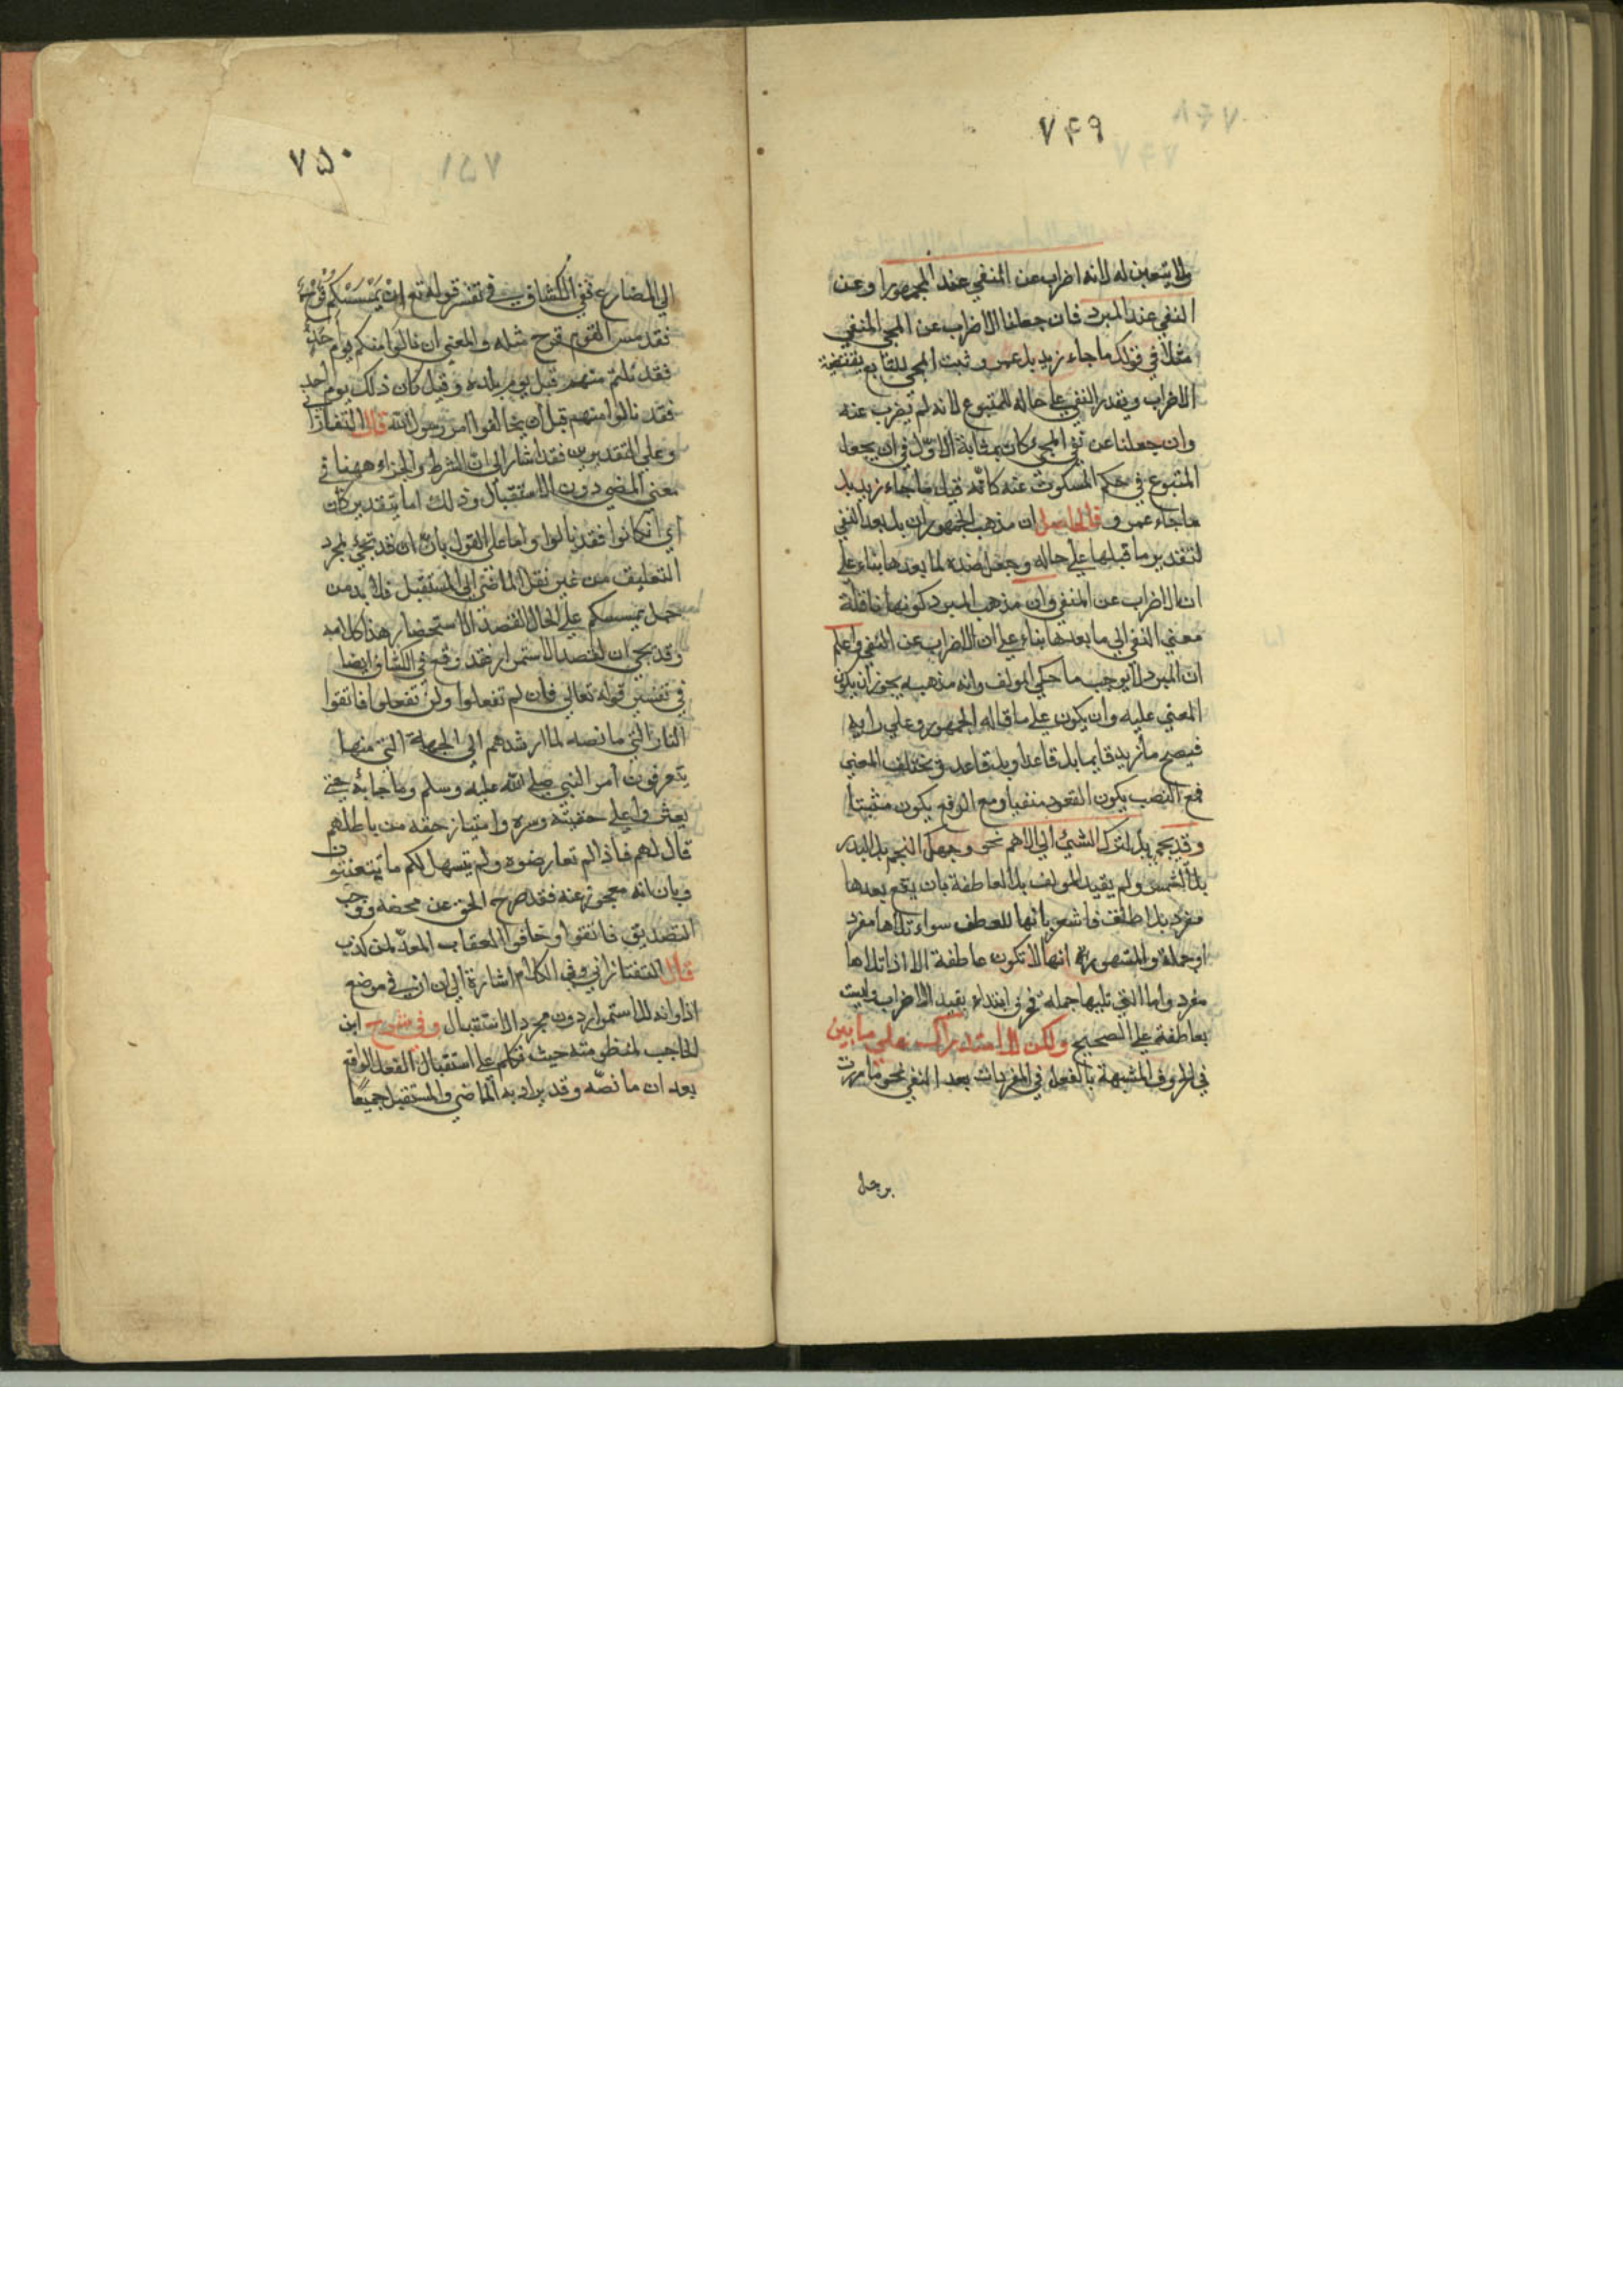 ٧۴٩
ولا يتعين له لانه اضراب عن المنفي عند الجمهور او عن
النفي عند المبرد فان جعلنا الاضراب عن المجي المنفي
مثلا في قولك ما جاء زيد بل عمرو ثبت المجي للتابع يقتضية
الاضراب ويقدر النفي على حاله للمتبوع لانه لم يضرب عنه
وان جعلنا عن نفي المجيء كان بمثابة الاول في ان يجعل
المتبوع في حكم المسكوت عنه كانه قيل ما جاء زيد بل
ما جاء عمرو فالحاصل ان مذهب الجمهور ان بل بعد النفي
لتقدير ما قبلها على حاله وجعل ضده لما بعدها بناء على
ان الاضراب عن المنفي وان مذهب المبرد كونها ناقلة
معني النفي الي ما بعدها بناء على ان الاضراب عن النفي واعلم
ان المبرد لا يوجب ما حكي المولف وانه مذهبه يجوز ان يكون
المعني عليه وان يكون على ما قاله الجمهور وعلي رايه
فيصح ما زيد قايما بل قاعدا وبل قاعد ويختلف المعني
فمع النصب يكون القعود منفيا ومع الرفع يكون مثبتا
وقد يجي بل لترك الشيء الي الاهم نحو وجهك النجم بل البدر
بل الشمس ولم يقيد المولف بل العاطفة بان يقع بعدها
مفرد بل اطلق فاشعر بانها للعطف سواء تلاها مفرد
او جملة والمشهور انها لا تكون عاطفة الا اذا تلاها
مفرد واما التي تليها جملة فحرف ابتداء يفيد الاضراب وليست
بعاطفة على الصحيح ولكن للاستدراك على ما بين
في الحروف المشبهة بالفعل في المفردات بعد النفي نحو ما مررت
برجل
٧۵٠
الي المضارع ففي الكشاف في تفسير قوله تع ان يمسسكم قرح
فقد مس القوم قرح مثله والمعني ان نالوا منكم يوم احد
فقد نلتم منهم قبل يوم بدر وقيل كان ذلك يوم احد
فقد نالوا منهم قبل ان يخالفوا امر رسول الله قال التفتازا
وعلي التقديرين فقد اشار الي ان الشرط والجزاء ههنا في
معني المضي دون الاستقبال وذلك اما بتقدير كان
اي ان كانوا فقد نالوا واما على القول بان ان قد تجيء لمجرد
التعليق من غير نقل الماضي الي المستقبل فلا بد من
حمل يمسسكم على الحال لقصد الاستحضار هذا كلامه
وقد يجي ان لقصد الاستمرار فقد وقع في الكشاف ايضا
في تفسير قوله تعالي فان لم تفعلوا ولن تفعلوا فاتقوا
النار التي ما نصه لما ارشدهم الي الجهة التي منها
يتعرفون امر النبي صلى الله عليه وسلم وما جاء به حتى
يعثروا على حقيقته وسره وامتياز حقه من باطلهم
قال لهم فاذا لم تعارضوه ولم يتسهل لكم ما تبتغون
وبان انه معجوز عنه فقد صرح الحق عن محضه ووجب
التصديق فاتقوا وخافوا العقاب المعد لمن كذب
قال التفتازاني وفي الكلام اشارة الي ان ان في موضع
اذا وانه للاستمرار دون مجرد الاستقبال وفي شرح ابن
الحاجب لمنظومته حيث تكلم على استقبال الفعل الواقع
بعد ان ما نصه وقد يراد به الماضي والمستقبل جميعا